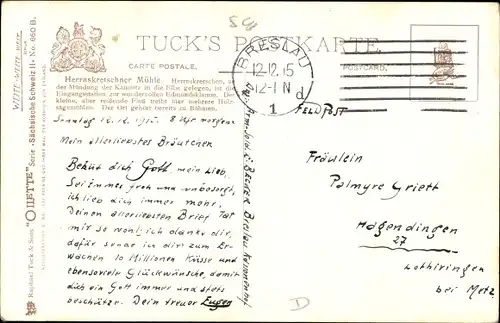 TUCK'S POSTKARTE.
CARTE POSTALE.
POSTCARD.
BRESLAU
12.12.15
12-1 N
d
1
Herrnskretschner Mühle. Herrnskretschen, an
der Mündung der Kamnitz in die Elbe gelegen, ist die
Eingangsstation zur wundervollen Edmundsklamm. Der
kleine, aber reißende Fluß treibt hier mehrere Holz-
sägemühlen. Der Ort gehört bereits zu Böhmen.
Sonntag 12.12.1915. 8 Uhr morgens.
Mein allerliebstes Bräutchen
Behüt dich Gott, mein Lieb.
Sei immer froh und unbesorgt,
ich lieb dich immer mehr,
Deinen allerliebsten Brief tat
mir so wohl, ich danke dir,
dafür sende ich dir zum Er-
wachen 10 Millionen Küsse und
ebensoviele Glückwünsche, damit
dich ein Gott immer und stets
beschütze. Dein treuer Eugen
Becker Breslau
FELDPOST
Fräulein
Palmyre Griett
Hagendingen
27
Lothringen
bei Metz
D
Raphael Tuck & Sons "OILETTE" Serie „Sächsische Schweiz II“ No. 660 B.